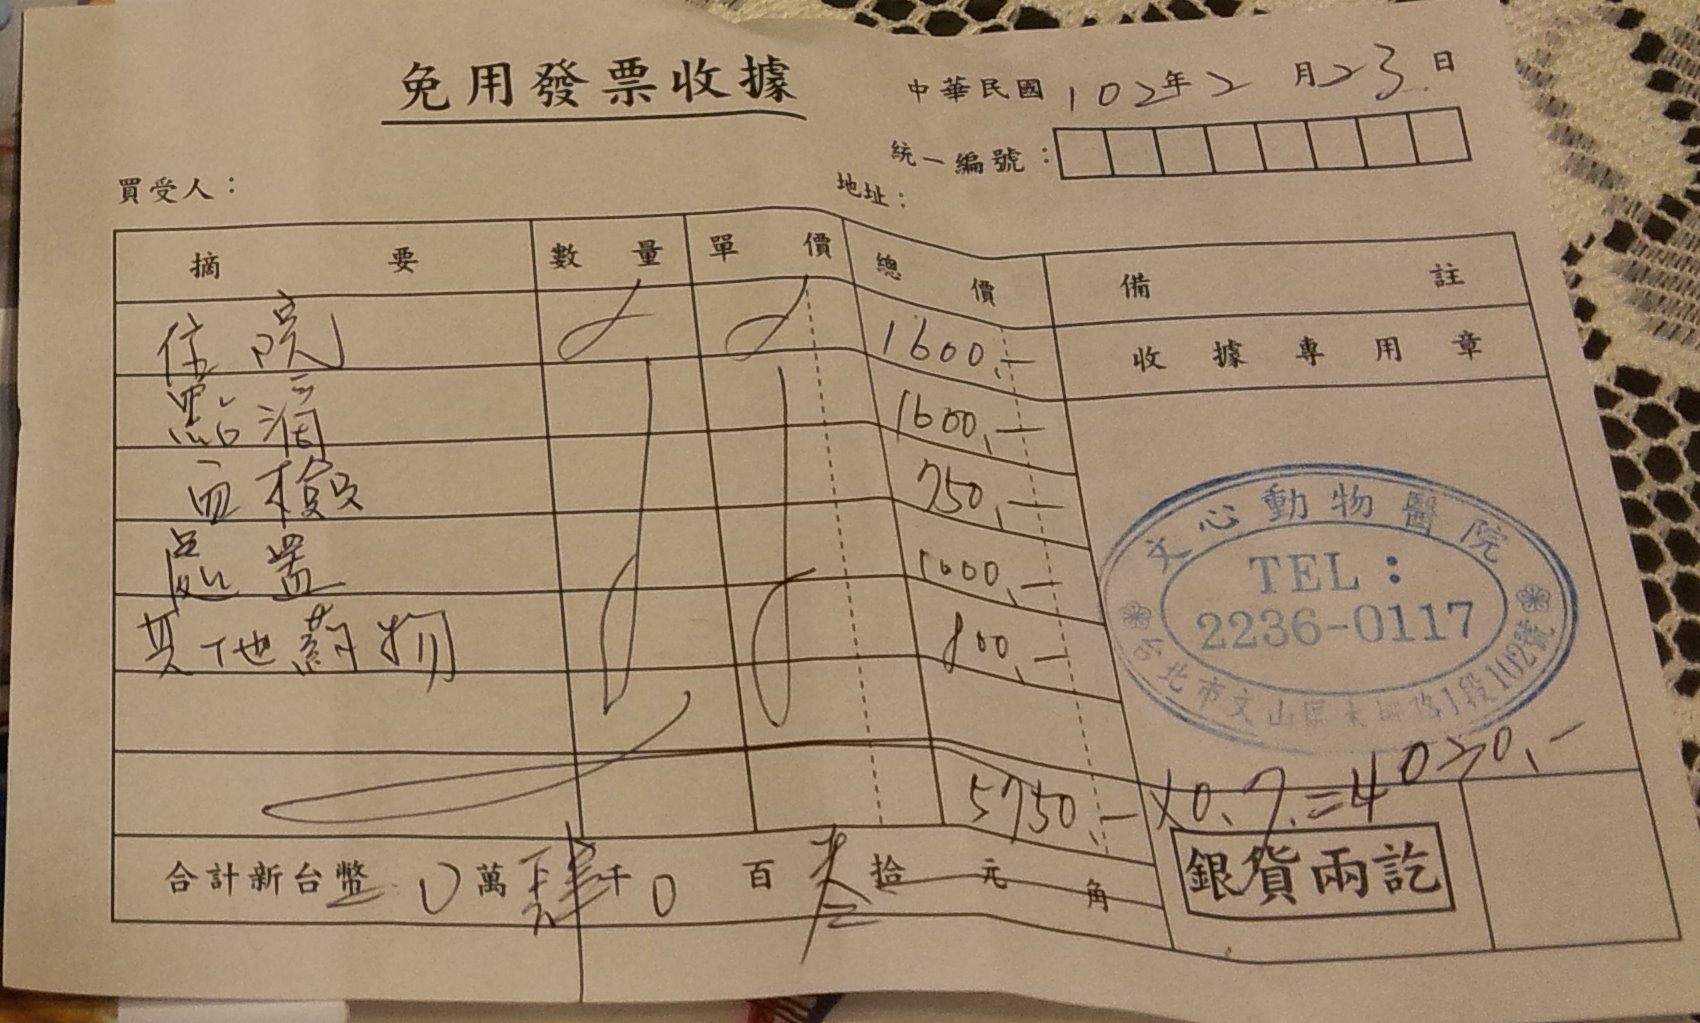 免用發票收據
中華民國102年2月23日
統一編號：
買受人：
地址：
摘要 數量 單價 總價 備註
住院 1600.-
收據專用章
點滴 1600.-
血檢 750.-
處置 1000.-
其他药物 800.-
文心動物醫院
TEL：
2236-0117
台北市文山區木柵路1段102號
5750.- x0.7.=4020.-
合計新台幣 0萬肆千0百貳拾元角
銀貨兩訖